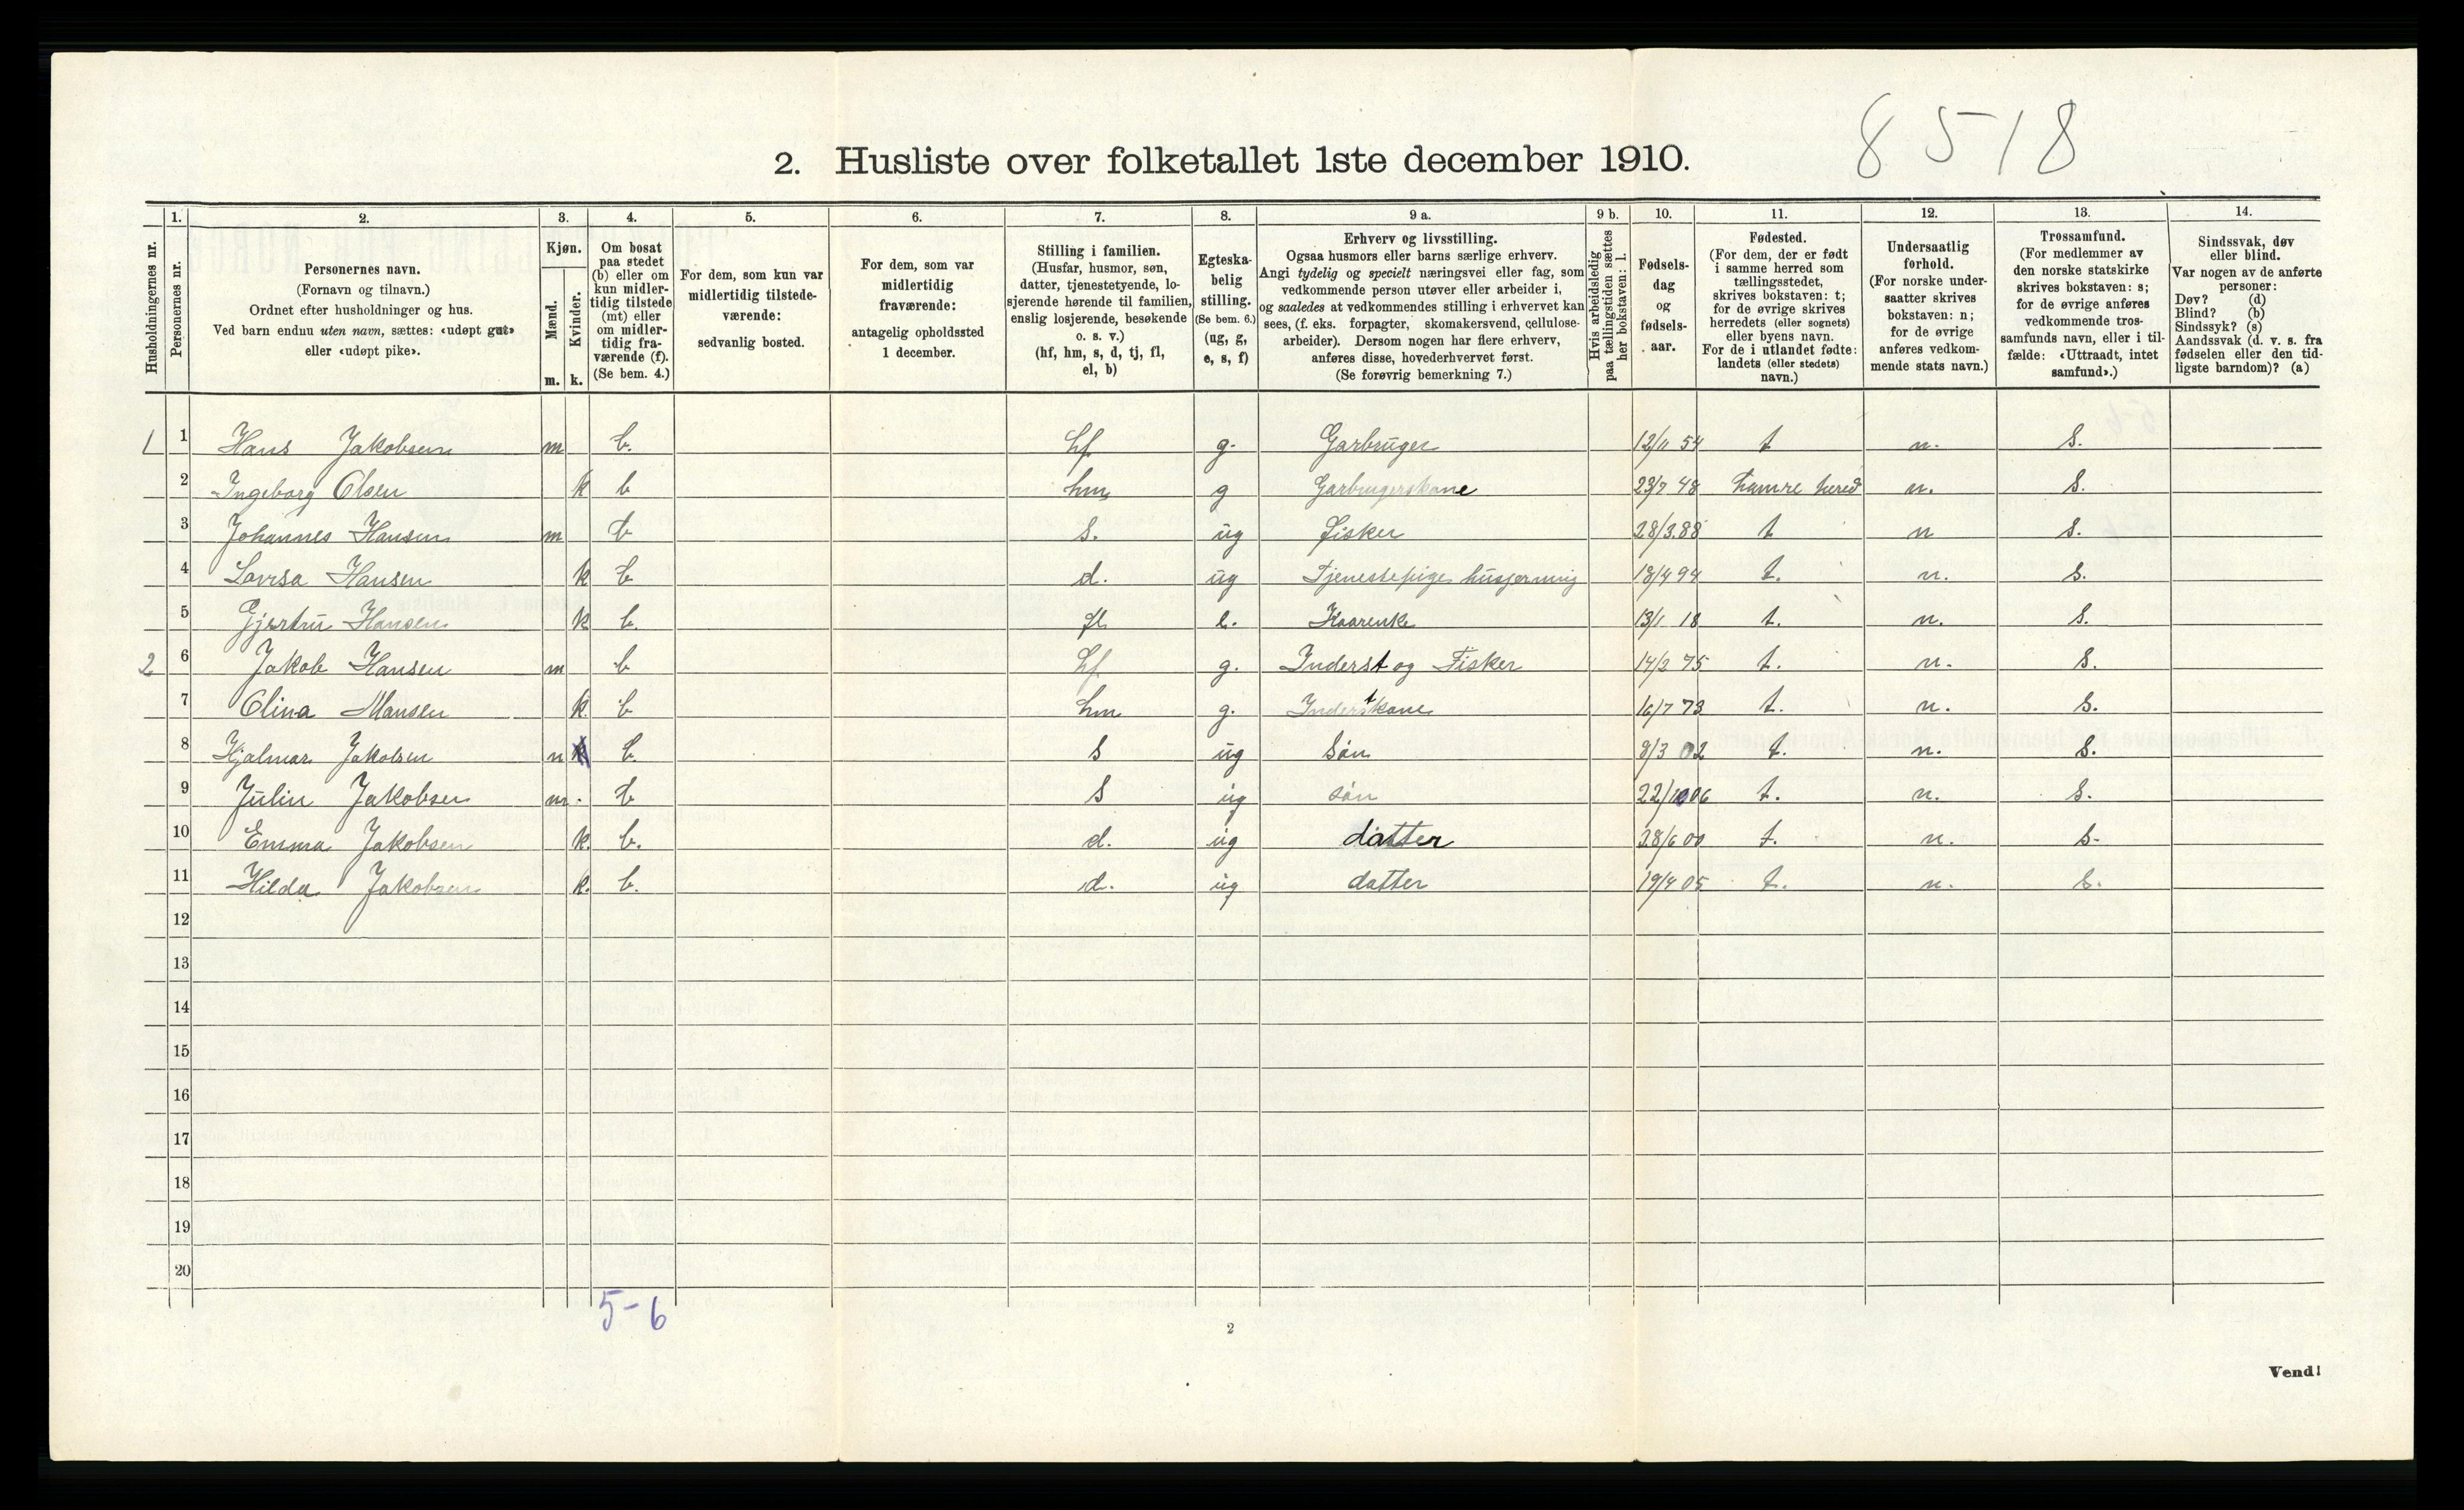 8 5 18
2. Husliste over folketallet 1ste december 1910.
Husholdningernes nr.
1. Personernes nr.
2. Personernes navn.
(Fornavn og tilnavn.)
Ordnet efter husholdninger og hus.
Ved barn endnu uten navn, sættes: «udøpt gut»
eller «udøpt pike».
3. Kjøn.
Mænd. m.
Kvinder. k.
4. Om bosat
paa stedet
(b) eller om
kun midler-
tidig tilstede
(mt) eller
om midler-
tidig fra-
værende (f).
(Se bem. 4.)
5. For dem, som kun var
midlertidig tilstede-
værende:
sedvanlig bosted.
6. For dem, som var
midlertidig
fraværende:
antagelig opholdssted
1 december.
7. Stilling i familien.
(Husfar, husmor, søn,
datter, tjenestetyende, lo-
sjerende hørende til familien,
enslig losjerende, besøkende
o. s. v.)
(hf, hm, s, d, tj, fl,
el, b)
8. Egteska-
belig
stilling.
(Se bem. 6.)
(ug, g,
e, s, f)
9 a. Erhverv og livsstilling.
Ogsaa husmors eller barns særlige erhverv.
Angi tydelig og specielt næringsvei eller fag, som
vedkommende person utøver eller arbeider i,
og saaledes at vedkommendes stilling i erhvervet kan
sees, (f. eks. forpagter, skomakersvend, cellulose-
arbeider). Dersom nogen har flere erhverv,
anføres disse, hovederhvervet først.
(Se forøvrig bemerkning 7.)
9 b. Hvis arbeidsledig
paa tællingstiden sættes
her bokstaven: l.
10. Fødsels-
dag
og
fødsels-
aar.
11. Fødested.
(For dem, der er født
i samme herred som
tællingsstedet,
skrives bokstaven: t;
for de øvrige skrives
herredets (eller sognets)
eller byens navn.
For de i utlandet fødte:
landets (eller stedets)
navn.)
12. Undersaatlig
forhold.
(For norske under-
saatter skrives
bokstaven: n;
for de øvrige
anføres vedkom-
mende stats navn.)
13. Trossamfund.
(For medlemmer av
den norske statskirke
skrives bokstaven: s;
for de øvrige anføres
vedkommende tros-
samfunds navn, eller i til-
fælde: «Uttraadt, intet
samfund».)
14. Sindssvak, døv
eller blind.
Var nogen av de anførte
personer:
Døv? (d)
Blind? (b)
Sindssyk? (s)
Aandssvak (d. v. s. fra
fødselen eller den tid-
ligste barndom)? (a)
1 1 Hans Jakobsen m b. hf. g. Garbruger 12/11 54 t n. S.
2 Ingeborg Olsen k b hm g Garbrugerskone 23/7 48 hamre hered n. S.
3 Johannes Hansen m b S. ug fisker 28/3.88 t n S.
4 Lovisa Hansen k b d. ug Tjenestepige husgerning 18/4 94 t. n. S.
5 Gjertru Hansen k b. fl e. Kaarenke 13/1 18 t. n. S.
2 6 Jakob Hansen m b hf g. Inderst og Fisker 14/2 75 t. n. S.
7 Olina Mansen k. b hm g. Inderstkone 16/7 73 t. n. S.
8 Hjalmar Jakobsen m b. S ug Søn 8/3 02 t. n. S.
9 Julin Jakobsen m. b S ug søn 22/10 06 t. n. S.
10 Emma Jakobsen k. b. d. ug datter 28/6 00 t. n. S.
11 Hilda Jakobsen k. b. d. ug datter 19/4 05 t. n. S.
12
13
14
15
16
17
18
19
20
5-6
2
Vend!